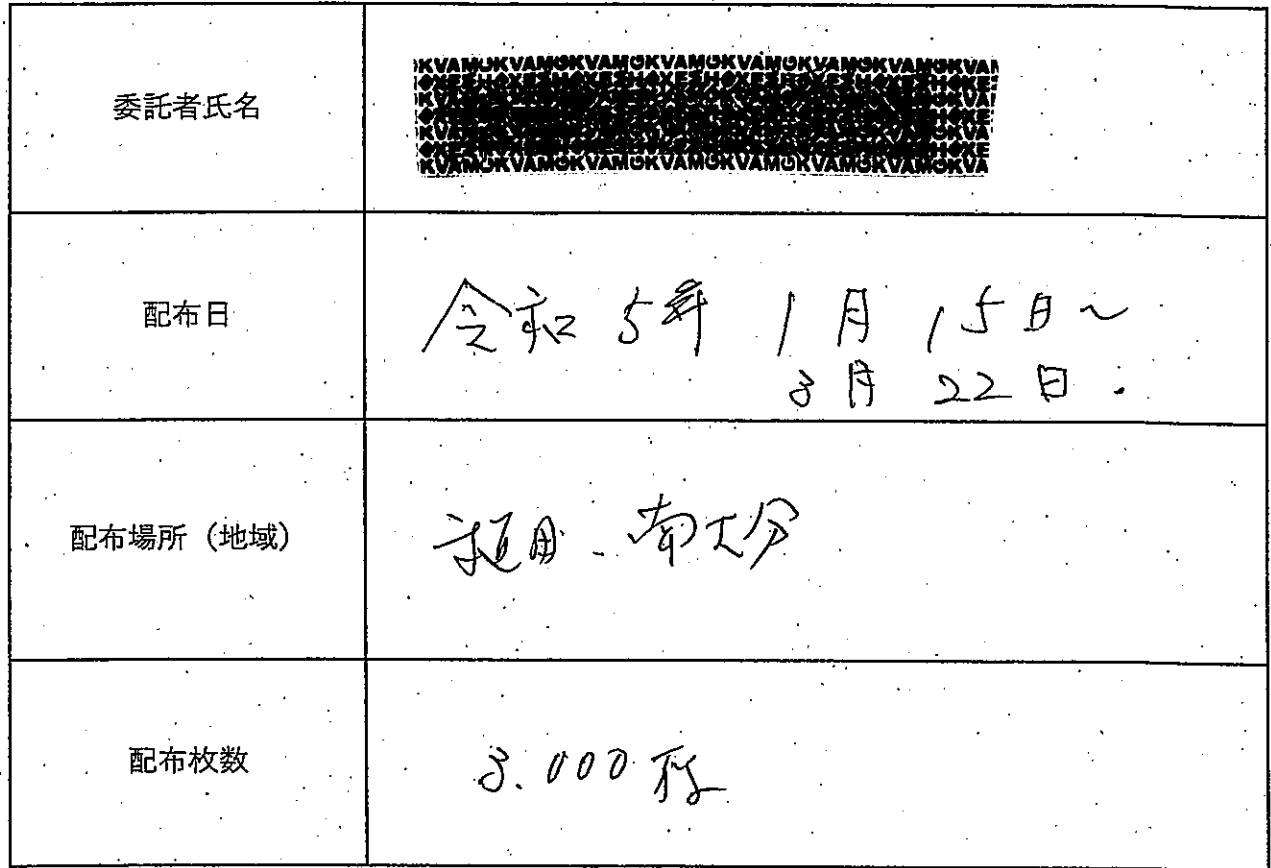 委託者氏名
配布日
令和5年 1月 15日~
3月 22日.
配布場所(地域)
稙田、南大分
配布枚数
3.000枚